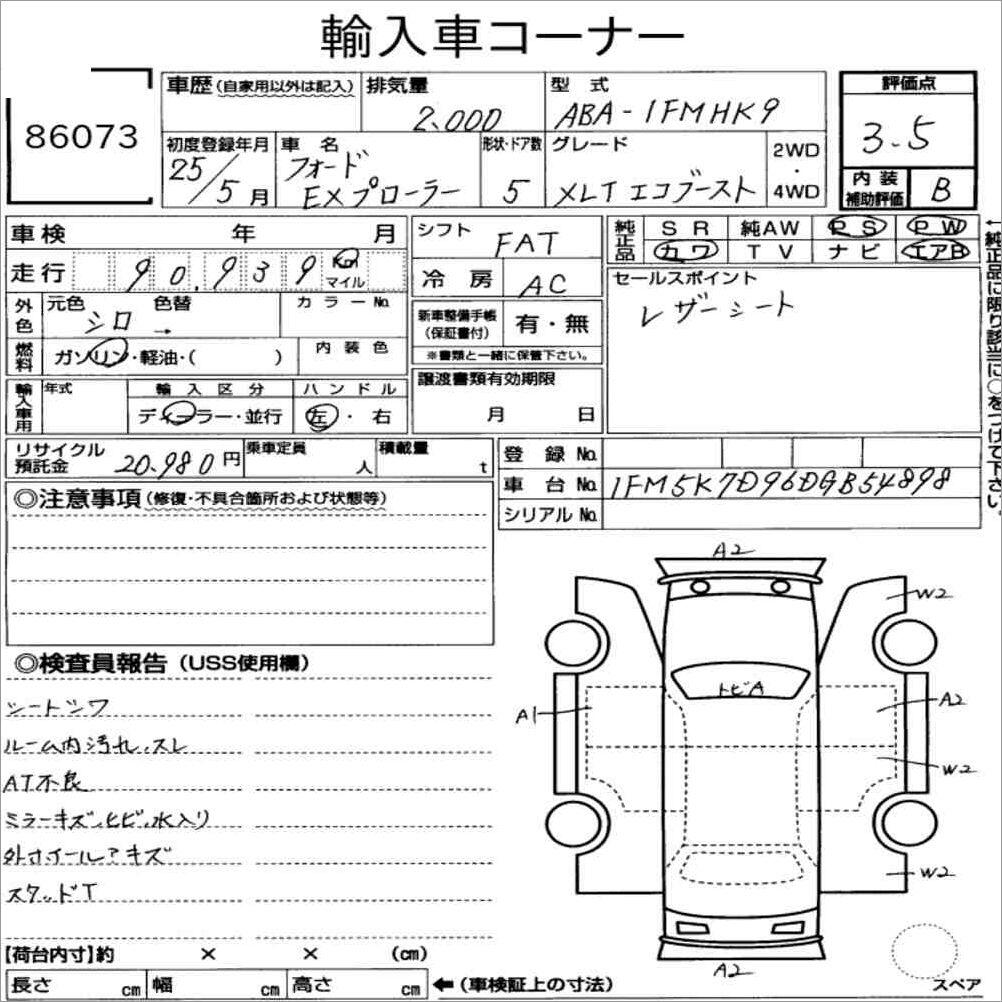 輸入車コーナー
86073
車歴(自家用以外は記入) 排気量 型式 評価点
2.000 ABA-1FMHK9 3.5
初度登録年月 車名 形状・ドア数 グレード 2WD・4WD
25/5月 フォード EXプローラー 5 XLT エコブースト
内装補助評価 B
車検 年 月 シフト FAT 純正品 SR 純AW PS PW
カワ TV ナビ エアB
走行 90,939 Km マイル 冷房 AC
セールスポイント
レザーシート
外色 元色 シロ 色替 → カラーNo.
新車整備手帳(保証書付) 有・無
※書類と一緒に保管下さい。
燃料 ガソリン・軽油・( ) 内装色
譲渡書類有効期限
月 日
輸入車用 年式 輸入区分 ハンドル
ディーラー・並行 左・右
←純正品に限り該当に○をつけて下さい。
リサイクル預託金 20,980円 乗車定員 人 積載量 t
登録No.
車台No. 1FM5K7D96DGB54898
シリアルNo.
◎注意事項(修復・不具合箇所および状態等)
◎検査員報告(USS使用欄)
シートシワ
ルーム内汚れ、スレ
AT不良
ミラーキズ、ヒビ、水入り
外ホイールアキズ
スタッドT
A2
W2
トビA
A1
A2
W2
W2
A2
スペア
【荷台内寸】約 × × (cm)
長さ cm 幅 cm 高さ cm ←(車検証上の寸法)